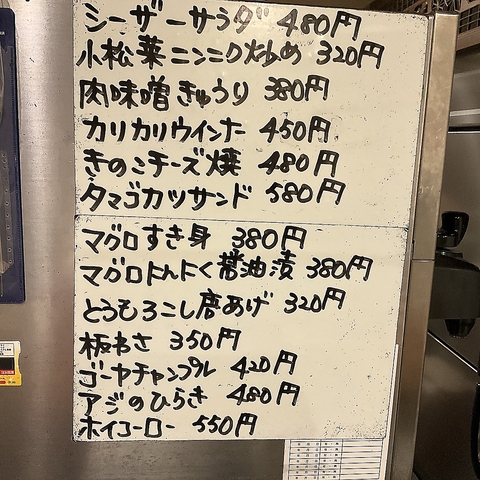 シーザーサラダ 480円
小松菜ニンニク炒め 320円
肉味噌きゅうり 380円
カリカリウインナー 450円
きのこチーズ焼 480円
タマゴカツサンド 580円
マグロすき身 380円
マグロにんにく醤油漬 380円
とうもろこし唐あげ 320円
板わさ 350円
ゴーヤチャンプル 420円
アジのひらき 480円
ホイコーロー 550円